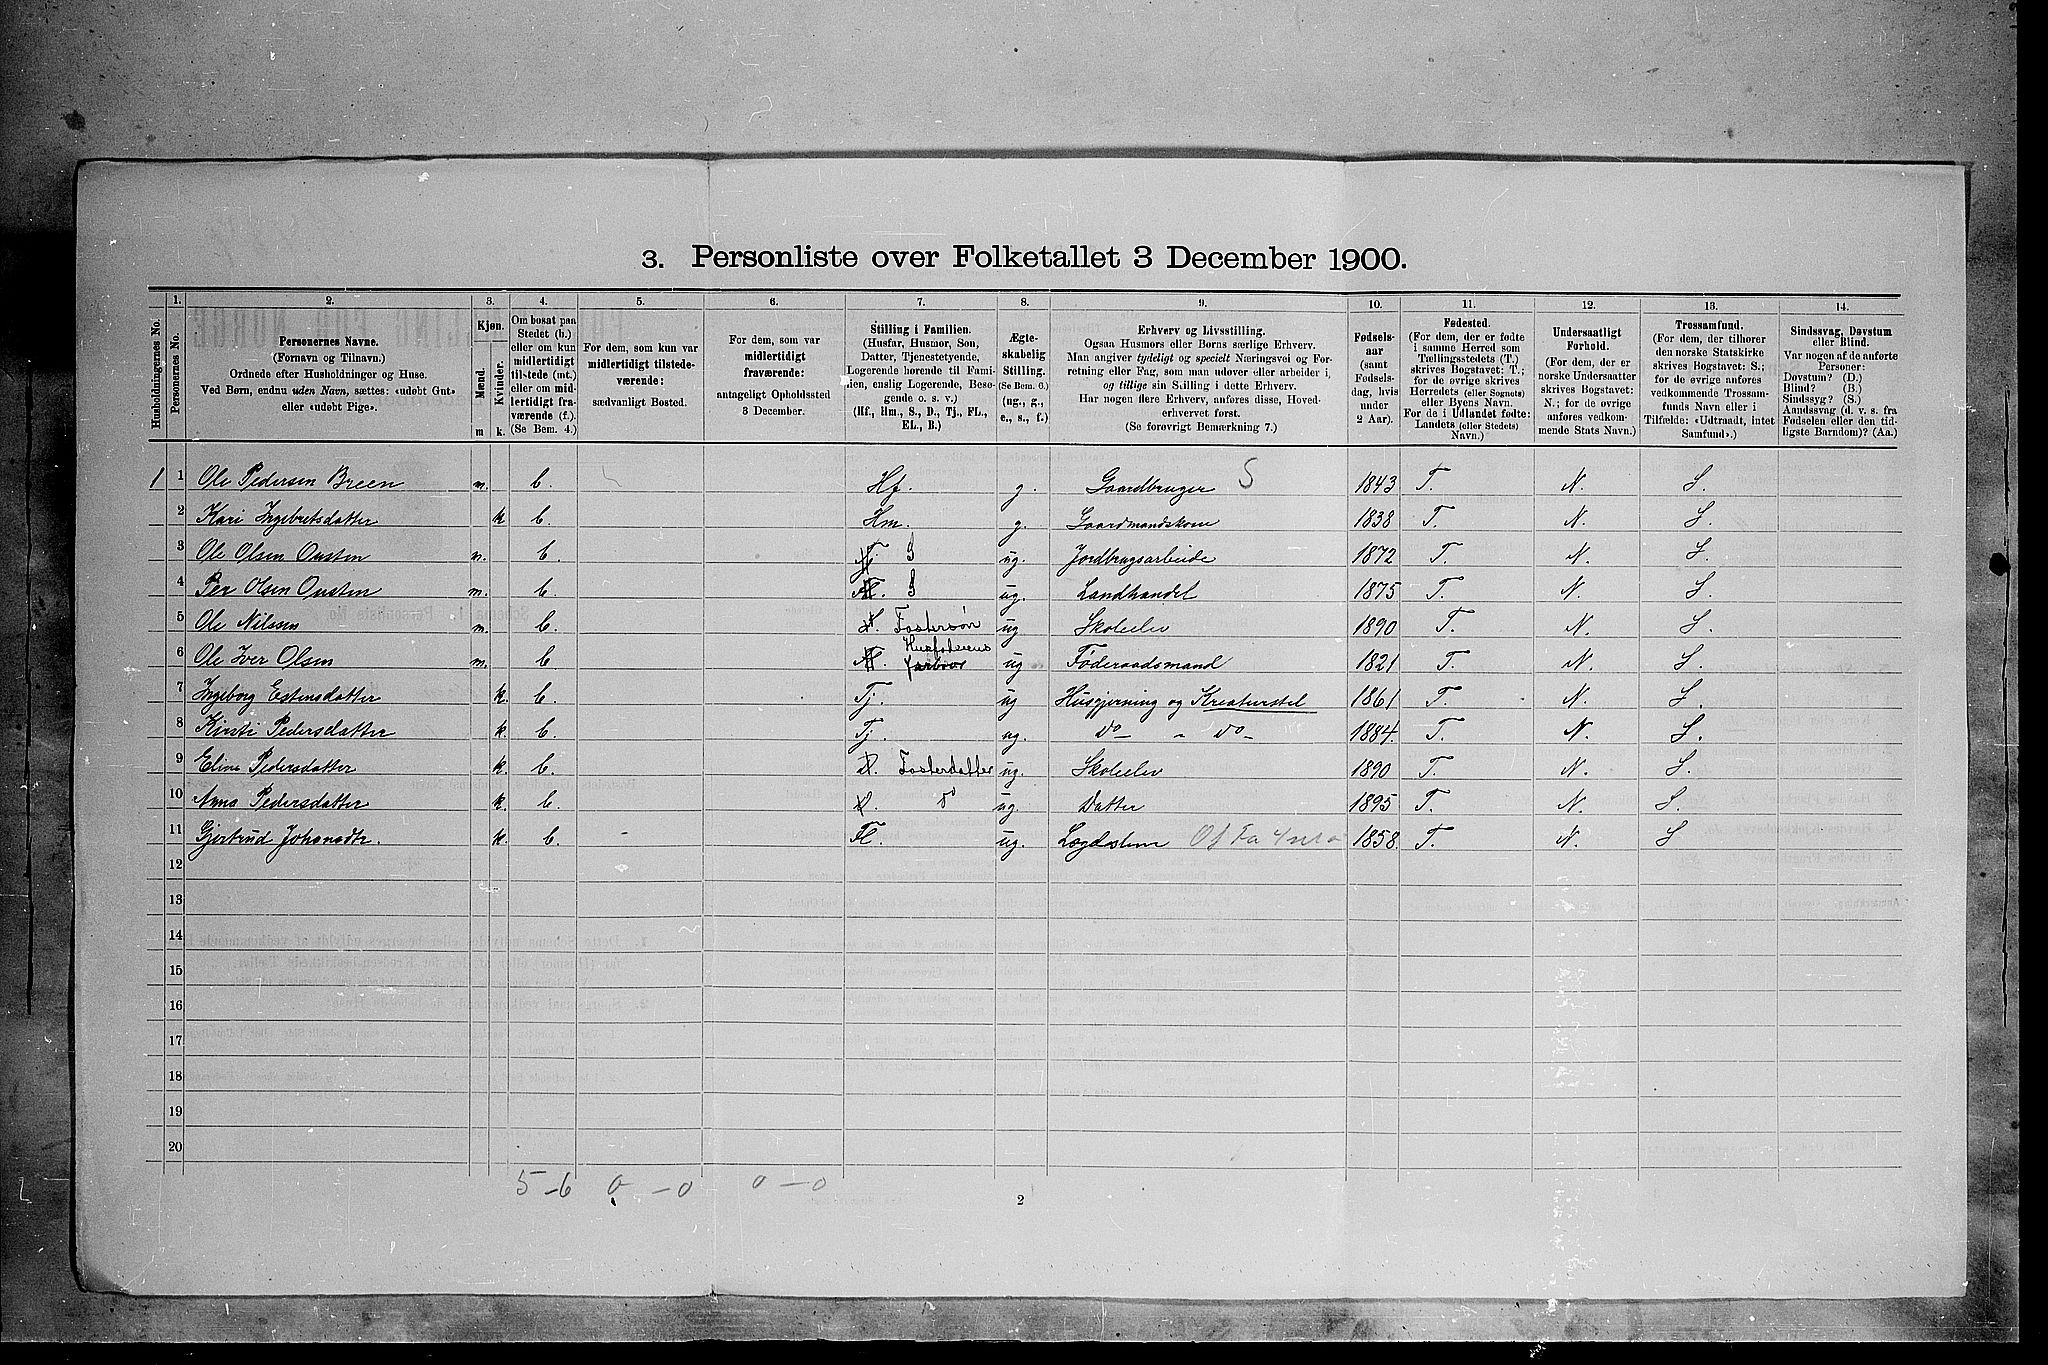 3. Personliste over Folketallet 3 December 1900.
1. 2. 3. 4. 5. 6. 7. 8. 9. 10. 11. 12. 13. 14.
Husholdningernes No.
Personernes No.
Personernes Navne.
(Fornavn og Tilnavn.)
Ordnede efter Husholdninger og Huse.
Ved Børn, endnu uden Navn, sættes: «udøbt Gut»
eller «udøbt Pige».
Kjøn.
Mænd. Kvinder.
m k.
Om bosat paa
Stedet (b.)
eller om kun
midlertidigt
tilstede (mt.)
eller om mid-
lertidigt fra-
værende (f.).
(Se Bem. 4.)
For dem, som kun var
midlertidigt tilstede-
værende:
sædvanligt Bosted.
For dem, som var
midlertidigt
fraværende:
antageligt Opholdssted
3 December.
Stilling i Familien.
(Husfar, Husmor, Søn,
Datter, Tjenestetyende,
Logerende hørende til Fami-
lien, enslig Logerende, Besø-
gende o. s. v.)
(Hf., Hm., S., D., Tj., FL.,
EL., B.)
Ægte-
skabelig
Stilling.
(Se Bem. 6.)
(ug., g.,
e., s., f.)
Erhverv og Livsstilling.
Ogsaa Husmors eller Børns særlige Erhverv.
Man angiver tydeligt og specielt Næringsvei og For-
retning eller Fag, som man udøver eller arbeider i,
og tillige sin Stilling i dette Erhverv.
Har nogen flere Erhverv, anføres disse, Hoved-
erhvervet først.
(Se forøvrigt Bemærkning 7.)
Fødsels-
aar
(samt
Fødsels-
dag, hvis
under
2 Aar).
Fødested.
(For dem, der er fødte
i samme Herred som
Tællingsstedets (T.)
skrives Bogstavet: T.;
for de øvrige skrives
Herredets (eller Sognets)
eller Byens Navn.
For de i Udlandet fødte:
Landets (eller Stedets)
Navn.)
Undersaatligt
Forhold.
(For dem, der er
norske Undersaatter
skrives Bogstavet:
N.; for de øvrige
anføres vedkom-
mende Stats Navn.)
Trossamfund.
(For dem, der tilhører
den norske Statskirke
skrives Bogstavet: S.;
for de øvrige anføres
vedkommende Trossam-
funds Navn eller i
Tilfælde: «Udtraadt, intet
Samfund».)
Sindssvag, Døvstum
eller Blind.
Var nogen af de anførte
Personer:
Døvstum? (D.)
Blind? (B.)
Sindssyg? (S.)
Aandssvag (d. v. s. fra
Fødselen eller den tid-
ligste Barndom)? (Aa.)
1 1 Ole Pedersen Breen m. b. Hf. g. Gaardbruger S 1843 T. N. S.
2 Kari Ingebretsdatter k b. Hm. g. Gaardmandskone 1838 T. N. S.
3 Ole Olsen Ousten m. b. S ug. Jordbrugsarbeide 1872 T. N. S.
4 Per Olsen Ousten m. b. S ug. Landhandel 1875 T. N. S.
5 Ole Nilssen m. b. Fostersøn ug Skoleelev 1890 T. N. S.
6 Ole Iver Olsen m. b. Husfaderens farbror ug Føderaadsmand 1821 T. N. S.
7 Ingeborg Estensdatter k. b. Tj. ug Husgjerning og Kreaturstel 1861 T. N. S.
8 Kirsti Pedersdatter k. b. Tj. ug. Do — " Do — 1884. T. N. S.
9 Eline Pedersdatter k. b. Fosterdatter ug. Skoleelev 1890 T. N. S.
10 Anna Pedersdatter k. b. do ug. Datter 1895 T. N. S.
11 Gjertrud Johansdtr. k. b. Fl. ug. Lægdslem 1858. T. N. S
12
13
14
15
16
17
18
19
20
5-6 0-0 0-0
2